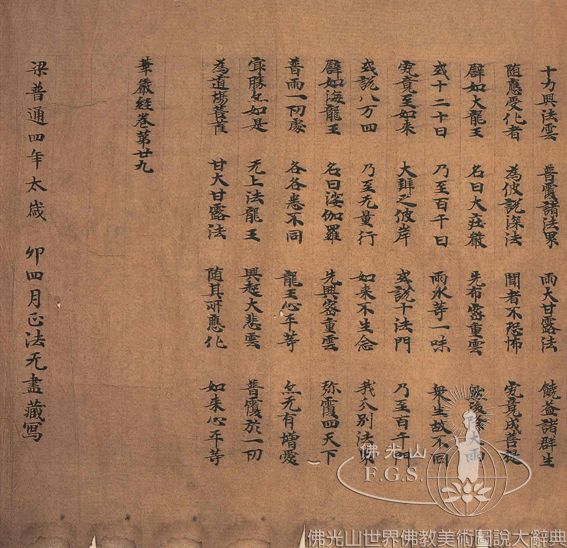 十力興法雲 普覆諸法界 雨大甘露法 饒益諸群生
随應受化者 為彼說深法 聞者不恐怖 究竟成菩提
譬如大龍王 名曰大莊嚴 先布密重雲 大雨
或十二十日 乃至百千日 雨水等一味 生故不同
究竟至如来 大辯之彼岸 或說十法門 乃至百千門
或說八万四 乃至无量行 如来不生念 我分別法
譬如海龍王 名曰娑伽羅 先興密重雲 弥覆四天下
普雨一切處 各各悉不同 龍王心平等 亦无有增愛
冣勝亦如是 无上法龍王 興起大悲雲 普覆於一切
為道場菩薩 甘大甘露法 随其所應化 如来心平等
華嚴經卷第廿九
梁普通四年太歳 卯四月正法无盡藏寫
佛光山
F.G.S.
佛光山世界佛教美術圖說大辭典